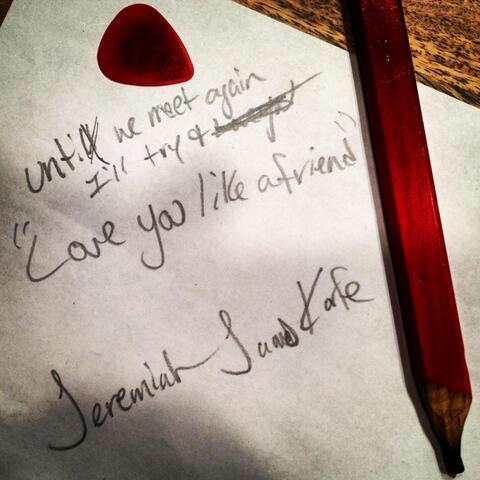 until we meet again
I'll try &
"Love you like a friend"
Jeremiah James Korfe